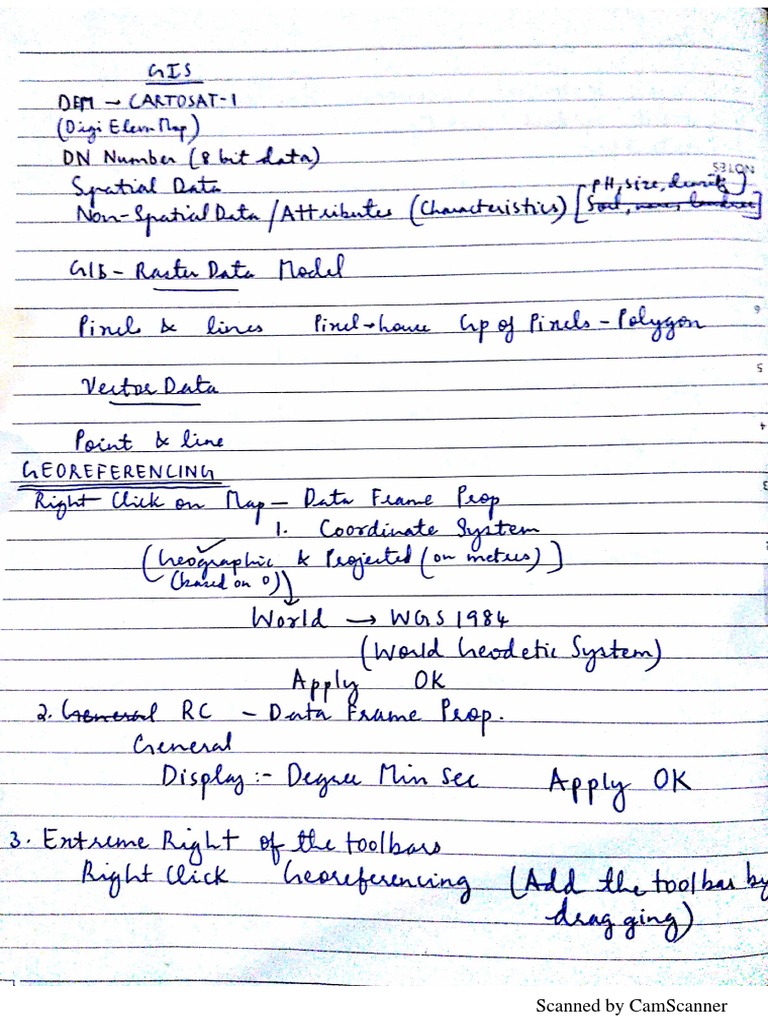 GIS
DEM → CARTOSAT-1
(Digi Elevn Map)
DN Number (8 bit data)
NOTES
Spatial Data
pH, size, density)
Non-Spatial Data / Attributes (Characteristics) [Soil, name, landuse]
GIS - Raster Data Model
Pixels & lines Pixel→house Grp of Pixels - Polygon
6
5
Vector Data
4
Point & line
GEOREFERENCING
3
Right Click on Map - Data Frame Prop
1. Coordinate System
(Geographic & Projected (on metres))
(based on 0))
World → WGS 1984
(World Geodetic System)
Apply OK
2. General RC - Data Frame Prop.
General
Display :- Degree Min Sec Apply OK
3. Extreme Right of the toolbars
Right Click Georeferencing (Add the toolbar by
dragging)
Scanned by CamScanner